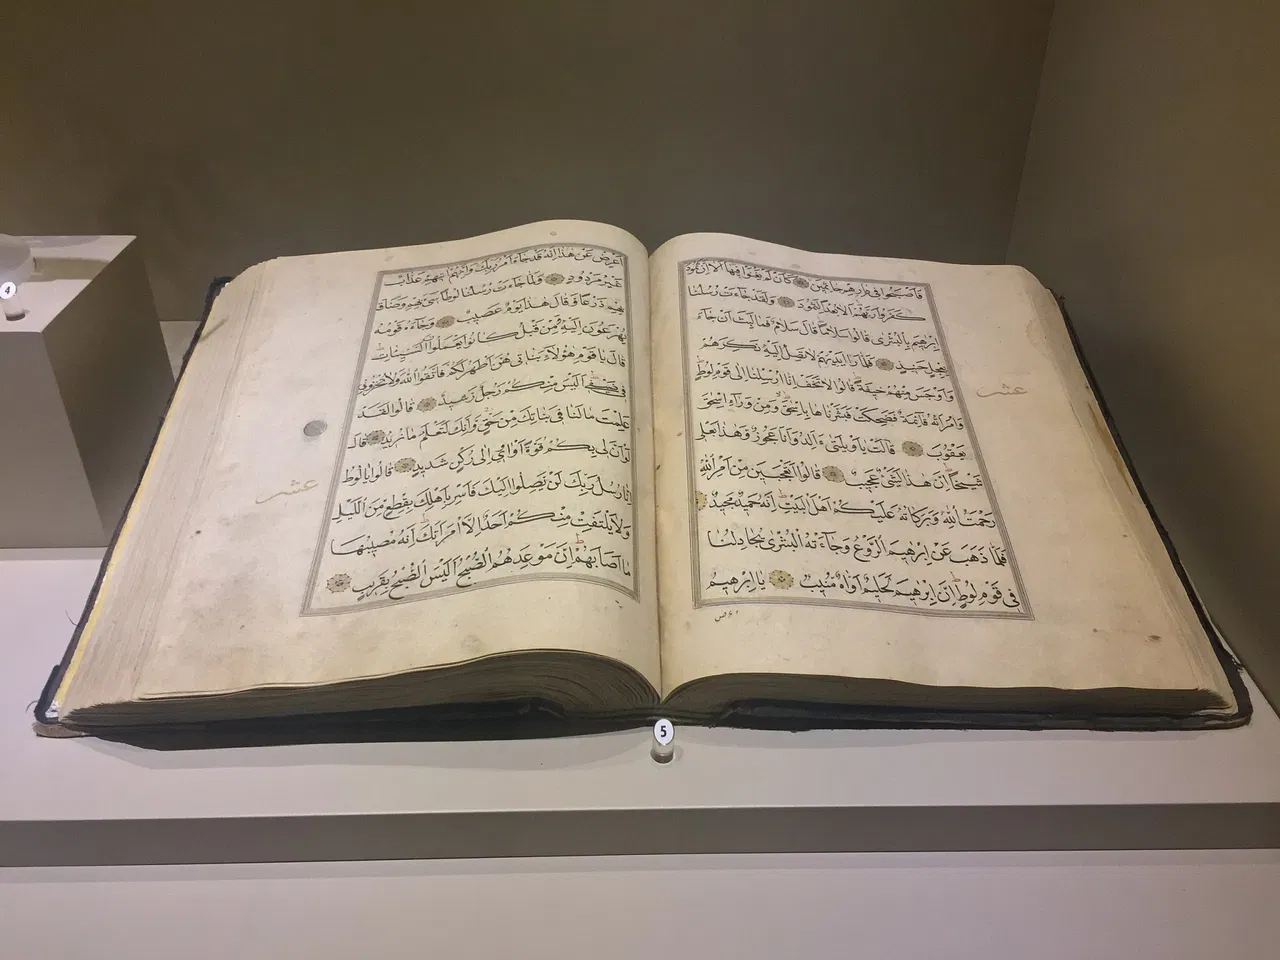 فَاَصْبَحُوا فى دِيَارِهِمْ جَاثِمِينَ كَاَنْ لَمْ يَغْنَوْا فِيهَا اَلَا اِنَّ ثَمُودَ
كَفَرُوا رَبَّهُمْ اَلَا بُعْدًا لِثَمُودَ وَلَقَدْ جَاءَتْ رُسُلُنَا
اِبْرٰهِيمَ بِالْبُشْرٰى قَالُوا سَلَامًا قَالَ سَلَامٌ فَمَا لَبِثَ اَنْ جَاءَ
بِعِجْلٍ حَنِيذٍ فَلَمَّا رَاٰ اَيْدِيَهُمْ لَا تَصِلُ اِلَيْهِ نَكِرَهُمْ
وَاَوْجَسَ مِنْهُمْ خِيفَةً قَالُوا لَا تَخَفْ اِنَّا اُرْسِلْنَا اِلٰى قَوْمِ لُوطٍ
وَامْرَاَتُهُ قَائِمَةٌ فَضَحِكَتْ فَبَشَّرْنَاهَا بِاِسْحٰقَ وَمِنْ وَرَاءِ اِسْحٰقَ
يَعْقُوبَ قَالَتْ يَا وَيْلَتٰى ءَاَلِدُ وَاَنَا عَجُوزٌ وَهٰذَا بَعْلِى
شَيْخًا اِنَّ هٰذَا لَشَىْءٌ عَجِيبٌ قَالُوا اَتَعْجَبِينَ مِنْ اَمْرِ اللّٰهِ
رَحْمَتُ اللّٰهِ وَبَرَكَاتُهُ عَلَيْكُمْ اَهْلَ الْبَيْتِ اِنَّهُ حَمِيدٌ مَجِيدٌ
فَلَمَّا ذَهَبَ عَنْ اِبْرٰهِيمَ الرَّوْعُ وَجَاءَتْهُ الْبُشْرٰى يُجَادِلُنَا
فى قَوْمِ لُوطٍ اِنَّ اِبْرٰهِيمَ لَحَلِيمٌ اَوَّاهٌ مُنِيبٌ يَا اِبْرٰهِيمُ
عشر
اَعْرِضْ عَنْ هٰذَا اِنَّهُ قَدْ جَاءَ اَمْرُ رَبِّكَ وَاِنَّهُمْ اٰتِيهِمْ عَذَابٌ
غَيْرُ مَرْدُودٍ وَلَمَّا جَاءَتْ رُسُلُنَا لُوطًا سِىءَ بِهِمْ وَضَاقَ
بِهِمْ ذَرْعًا وَقَالَ هٰذَا يَوْمٌ عَصِيبٌ وَجَاءَهُ قَوْمُهُ
يُهْرَعُونَ اِلَيْهِ وَمِنْ قَبْلُ كَانُوا يَعْمَلُونَ السَّيِّئَاتِ
قَالَ يَا قَوْمِ هٰؤُلَاءِ بَنَاتِى هُنَّ اَطْهَرُ لَكُمْ فَاتَّقُوا اللّٰهَ وَلَا تُخْزُونِ
فى ضَيْفِى اَلَيْسَ مِنْكُمْ رَجُلٌ رَشِيدٌ قَالُوا لَقَدْ
عَلِمْتَ مَا لَنَا فى بَنَاتِكَ مِنْ حَقٍّ وَاِنَّكَ لَتَعْلَمُ مَا نُرِيدُ قَالَ
لَوْ اَنَّ لى بِكُمْ قُوَّةً اَوْ اٰوِى اِلٰى رُكْنٍ شَدِيدٍ قَالُوا يَا لُوطُ
اِنَّا رُسُلُ رَبِّكَ لَنْ يَصِلُوا اِلَيْكَ فَاَسْرِ بِاَهْلِكَ بِقِطْعٍ مِنَ اللَّيْلِ
وَلَا يَلْتَفِتْ مِنْكُمْ اَحَدٌ اِلَّا امْرَاَتَكَ اِنَّهُ مُصِيبُهَا
مَا اَصَابَهُمْ اِنَّ مَوْعِدَهُمُ الصُّبْحُ اَلَيْسَ الصُّبْحُ بِقَرِيبٍ
عشر
4
5